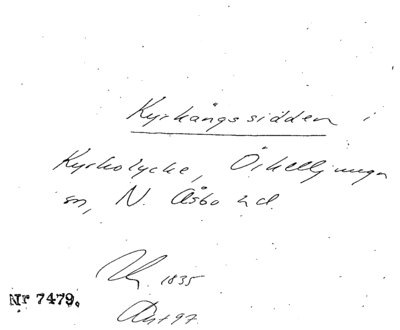 Kyrkängssidden i
Kyrkolycke, Örkelljunga
sn, N. Åsbo hd.
1835
Nr 7479.
97